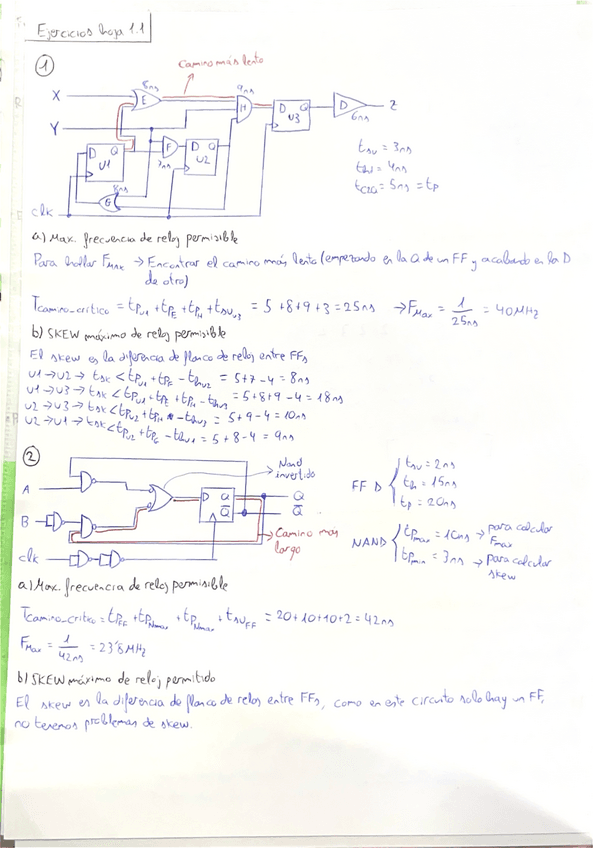 Ejercicios hoja 1.1
1
Camino más lento
8ns
9ns
X
E
H
D Q
U3
D
Z
6ns
Y
D Q
U1
F
7ns
D Q
U2
8ns
G
clk
tsu = 3ns
thd = 4ns
tC2Q = 5ns = tp
a) Max. frecuencia de reloj permisible
Para hallar FMax → Encontrar el camino más lento (empezando en la Q de un FF y acabando en la D
de otro)
Tcamino_crítico = tpU1 + tpE + tpH + tsuU3 = 5+8+9+3 = 25ns → FMax = 1/25ns = 40MHz
b) SKEW máximo de reloj permisible
El skew es la diferencia de flanco de reloj entre FFs
U1→U2→ tsk < tpU1 + tpF - thU2 = 5+7-4 = 8ns
U1→U3→ tsk < tpU1 + tpE + tpH - thU3 = 5+8+9-4 = 18ns
U2→U3→ tsk < tpU2 + tpH - thU3 = 5+9-4 = 10ns
U2→U1→ tsk < tpU2 + tpG - thU1 = 5+8-4 = 9ns
2
Nand
invertido
A
B
D Q
Q̅
Q
Q̅
Camino mas
largo
clk
FF D { tsu = 2ns
th = 15ns
tp = 20ns
NAND { tpmax = 10ns → para calcular
Fmax
tpmin = 3ns → para calcular
skew
a) Max. frecuencia de reloj permisible
Tcamino_crítico = tpFF + tpNmax + tpNmax + tsuFF = 20+10+10+2 = 42ns
FMax = 1/42ns = 23'8MHz
b) SKEW máximo de reloj permitido
El skew es la diferencia de flanco de reloj entre FFs, como en este circuito solo hay un FF,
no tenemos problemas de skew.